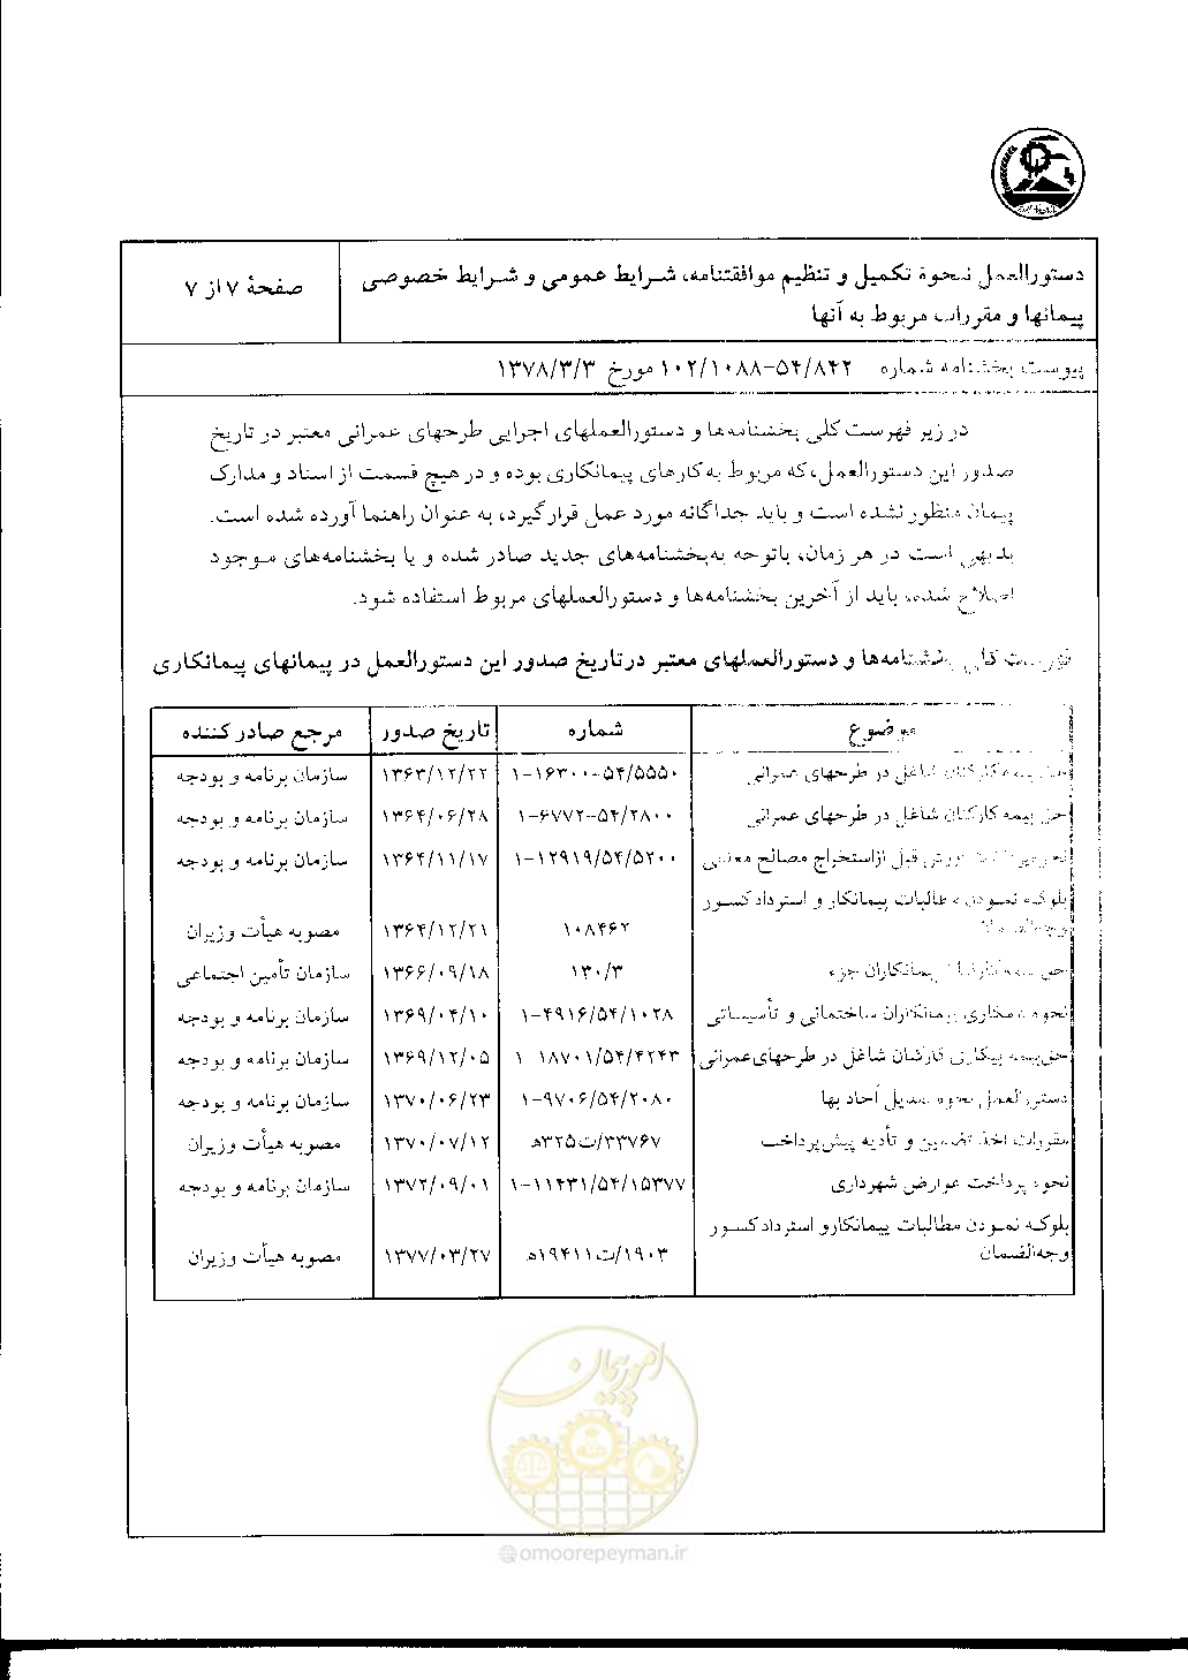 دستورالعمل نحوۀ تکمیل و تنظیم موافقتنامه، شرایط عمومی و شرایط خصوصی
پیمانها و مقررات مربوط به آنها
صفحۀ ۷ از ۷
پیوست بخشنامه شماره ۱۰۲/۱۰۸۸-۵۴/۸۴۲ مورخ ۱۳۷۸/۳/۳
در زیر فهرست کلی بخشنامه‌ها و دستورالعملهای اجرایی طرحهای عمرانی معتبر در تاریخ
صدور این دستورالعمل، که مربوط به کارهای پیمانکاری بوده و در هیچ قسمت از اسناد و مدارک
پیمان منظور نشده است و باید جداگانه مورد عمل قرار گیرد، به عنوان راهنما آورده شده است.
بدیهی است در هر زمان، باتوجه به‌بخشنامه‌های جدید صادر شده و یا بخشنامه‌های موجود
اصلاح شده، باید از آخرین بخشنامه‌ها و دستورالعملهای مربوط استفاده شود.
فهرست کلی بخشنامه‌ها و دستورالعملهای معتبر در تاریخ صدور این دستورالعمل در پیمانهای پیمانکاری
موضوع شماره تاریخ صدور مرجع صادر کننده
حق بیمه کارکنان شاغل در طرحهای عمرانی ۱-۱۶۳۰۰-۵۴/۵۵۵۰ ۱۳۶۳/۱۲/۲۲ سازمان برنامه و بودجه
حق بیمه کارکنان شاغل در طرحهای عمرانی ۱-۶۷۷۲-۵۴/۲۸۰۰ ۱۳۶۴/۰۶/۲۸ سازمان برنامه و بودجه
قبل از استخراج مصالح معدنی ۱-۱۲۹۱۹/۵۴/۵۲۰۰ ۱۳۶۴/۱۱/۱۷ سازمان برنامه و بودجه
بلوکه نمودن مطالبات پیمانکار و استرداد کسور
وجه‌الضمان ۱۰۸۴۶۲ ۱۳۶۴/۱۲/۲۱ مصوبه هیأت وزیران
حق بیمه کارکنان پیمانکاران جزء ۱۳۰/۳ ۱۳۶۶/۰۹/۱۸ سازمان تأمین اجتماعی
نحوه همکاری پیمانکاران ساختمانی و تأسیساتی ۱-۴۹۱۶/۵۴/۱۰۲۸ ۱۳۶۹/۰۴/۱۰ سازمان برنامه و بودجه
حق‌بیمه بیکاری کارکنان شاغل در طرحهای عمرانی ۱ ۱۸۷۰۱/۵۴/۴۲۴۳ ۱۳۶۹/۱۲/۰۵ سازمان برنامه و بودجه
دستورالعمل نحوه تعدیل آحاد بها ۱-۹۷۰۶/۵۴/۲۰۸۰ ۱۳۷۰/۰۶/۲۳ سازمان برنامه و بودجه
مقررات اخذ تضمین و تأدیه پیش‌پرداخت ۲۳۷۶۷/ت۳۲۵ه ۱۳۷۰/۰۷/۱۲ مصوبه هیأت وزیران
نحوه پرداخت عوارض شهرداری ۱-۱۱۴۳۱/۵۴/۱۵۳۷۷ ۱۳۷۲/۰۹/۰۱ سازمان برنامه و بودجه
بلوکه نمودن مطالبات پیمانکارو استرداد کسور
وجه‌الضمان ۱۹۰۳/ت۱۹۴۱۱ه ۱۳۷۷/۰۳/۲۷ مصوبه هیأت وزیران
امور پیمان
@omoorepeyman.ir